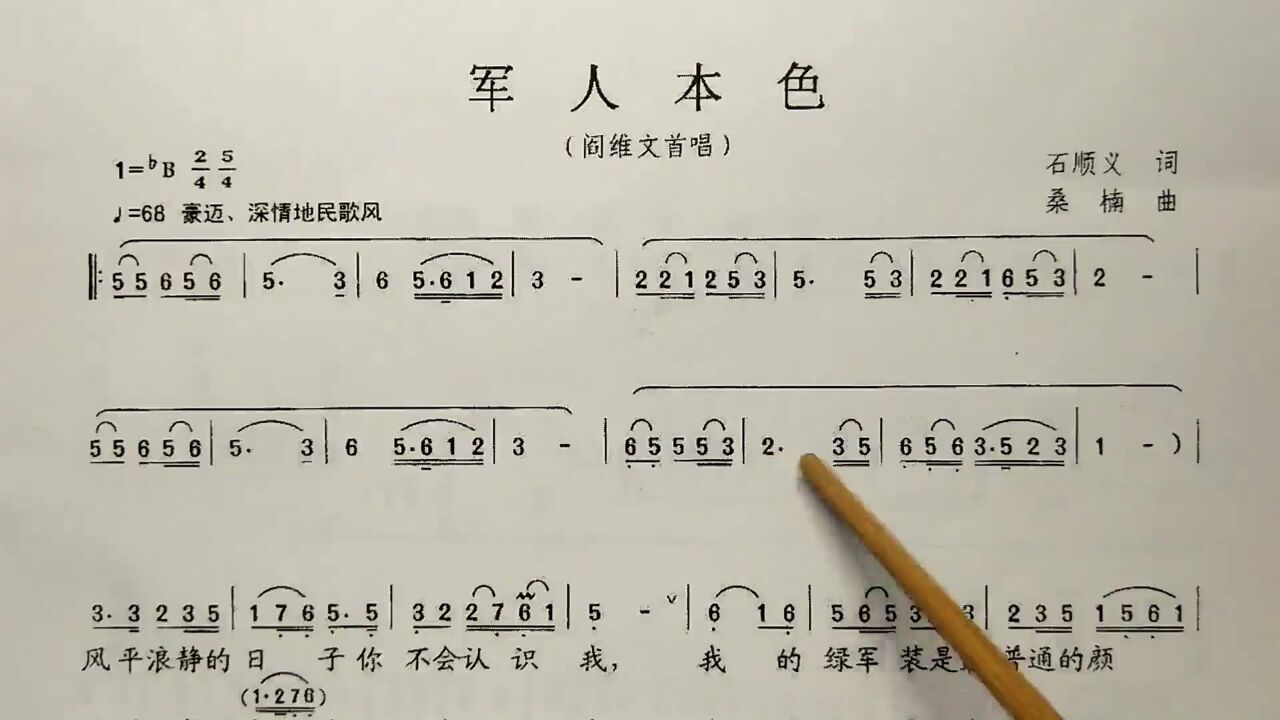 军人本色
（阎维文首唱）
1=♭B 2/4 5/4
石顺义 词
♩=68 豪迈、深情地民歌风
桑楠 曲
‖: 5 5 6 5 6 | 5· 3 | 6 5·6 1 2 | 3 - | 2 2 1 2 5 3 | 5· 5 3 | 2 2 1 6 5 3 | 2 - |
5 5 6 5 6 | 5· 3 | 6 5·6 1 2 | 3 - | 6 5 5 5 3 | 2· 3 5 | 6 5 6 3·5 2 3 | 1 - ) |
3· 3 2 3 5 | 1 7 6 5· 5 | 3 2 2 7 6 1 | 5 - ∨ | 6 1 6 | 5 6 5 3 | 2 3 5 1 5 6 1 |
风平浪静的日 子你 不会认 识 我， 我 的 绿军 装是 普通的颜
(1·2 7 6)